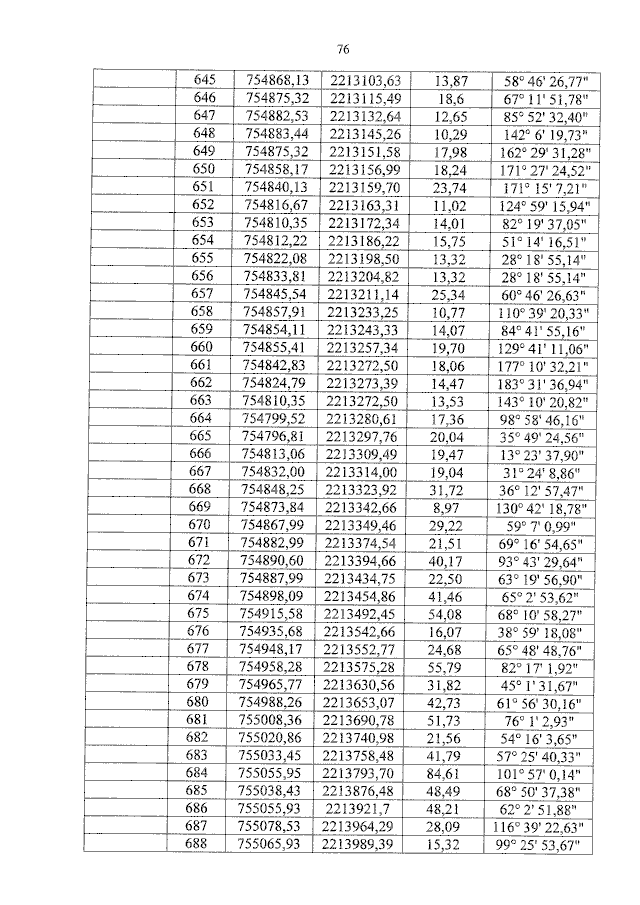 76
645 754868,13 2213103,63 13,87 58° 46' 26,77"
646 754875,32 2213115,49 18,6 67° 11' 51,78"
647 754882,53 2213132,64 12,65 85° 52' 32,40"
648 754883,44 2213145,26 10,29 142° 6' 19,73"
649 754875,32 2213151,58 17,98 162° 29' 31,28"
650 754858,17 2213156,99 18,24 171° 27' 24,52"
651 754840,13 2213159,70 23,74 171° 15' 7,21"
652 754816,67 2213163,31 11,02 124° 59' 15,94"
653 754810,35 2213172,34 14,01 82° 19' 37,05"
654 754812,22 2213186,22 15,75 51° 14' 16,51"
655 754822,08 2213198,50 13,32 28° 18' 55,14"
656 754833,81 2213204,82 13,32 28° 18' 55,14"
657 754845,54 2213211,14 25,34 60° 46' 26,63"
658 754857,91 2213233,25 10,77 110° 39' 20,33"
659 754854,11 2213243,33 14,07 84° 41' 55,16"
660 754855,41 2213257,34 19,70 129° 41' 11,06"
661 754842,83 2213272,50 18,06 177° 10' 32,21"
662 754824,79 2213273,39 14,47 183° 31' 36,94"
663 754810,35 2213272,50 13,53 143° 10' 20,82"
664 754799,52 2213280,61 17,36 98° 58' 46,16"
665 754796,81 2213297,76 20,04 35° 49' 24,56"
666 754813,06 2213309,49 19,47 13° 23' 37,90"
667 754832,00 2213314,00 19,04 31° 24' 8,86"
668 754848,25 2213323,92 31,72 36° 12' 57,47"
669 754873,84 2213342,66 8,97 130° 42' 18,78"
670 754867,99 2213349,46 29,22 59° 7' 0,99"
671 754882,99 2213374,54 21,51 69° 16' 54,65"
672 754890,60 2213394,66 40,17 93° 43' 29,64"
673 754887,99 2213434,75 22,50 63° 19' 56,90"
674 754898,09 2213454,86 41,46 65° 2' 53,62"
675 754915,58 2213492,45 54,08 68° 10' 58,27"
676 754935,68 2213542,66 16,07 38° 59' 18,08"
677 754948,17 2213552,77 24,68 65° 48' 48,76"
678 754958,28 2213575,28 55,79 82° 17' 1,92"
679 754965,77 2213630,56 31,82 45° 1' 31,67"
680 754988,26 2213653,07 42,73 61° 56' 30,16"
681 755008,36 2213690,78 51,73 76° 1' 2,93"
682 755020,86 2213740,98 21,56 54° 16' 3,65"
683 755033,45 2213758,48 41,79 57° 25' 40,33"
684 755055,95 2213793,70 84,61 101° 57' 0,14"
685 755038,43 2213876,48 48,49 68° 50' 37,38"
686 755055,93 2213921,7 48,21 62° 2' 51,88"
687 755078,53 2213964,29 28,09 116° 39' 22,63"
688 755065,93 2213989,39 15,32 99° 25' 53,67"